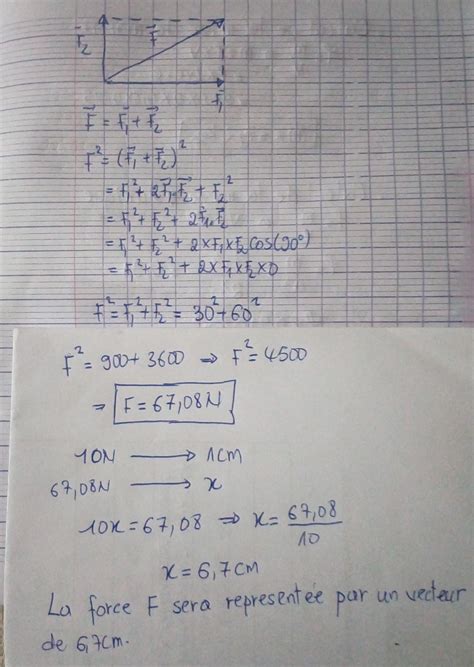 F⃗₂ F⃗
F⃗₁
F⃗ = F⃗₁ + F⃗₂
F² = (F⃗₁ + F⃗₂)²
= F₁² + 2F⃗₁·F⃗₂ + F₂²
= F₁² + F₂² + 2F⃗₁·F⃗₂
= F₁² + F₂² + 2×F₁×F₂cos(90°)
= F₁² + F₂² + 2×F₁×F₂×0
F² = F₁² + F₂² = 30² + 60²
F² = 900 + 3600 ⇒ F² = 4500
⇒ F = 67,08N
10N → 1cm
67,08N → x
10x = 67,08 ⇒ x = 67,08/10
x = 6,7cm
La force F sera representée par un vecteur
de 6,7cm.